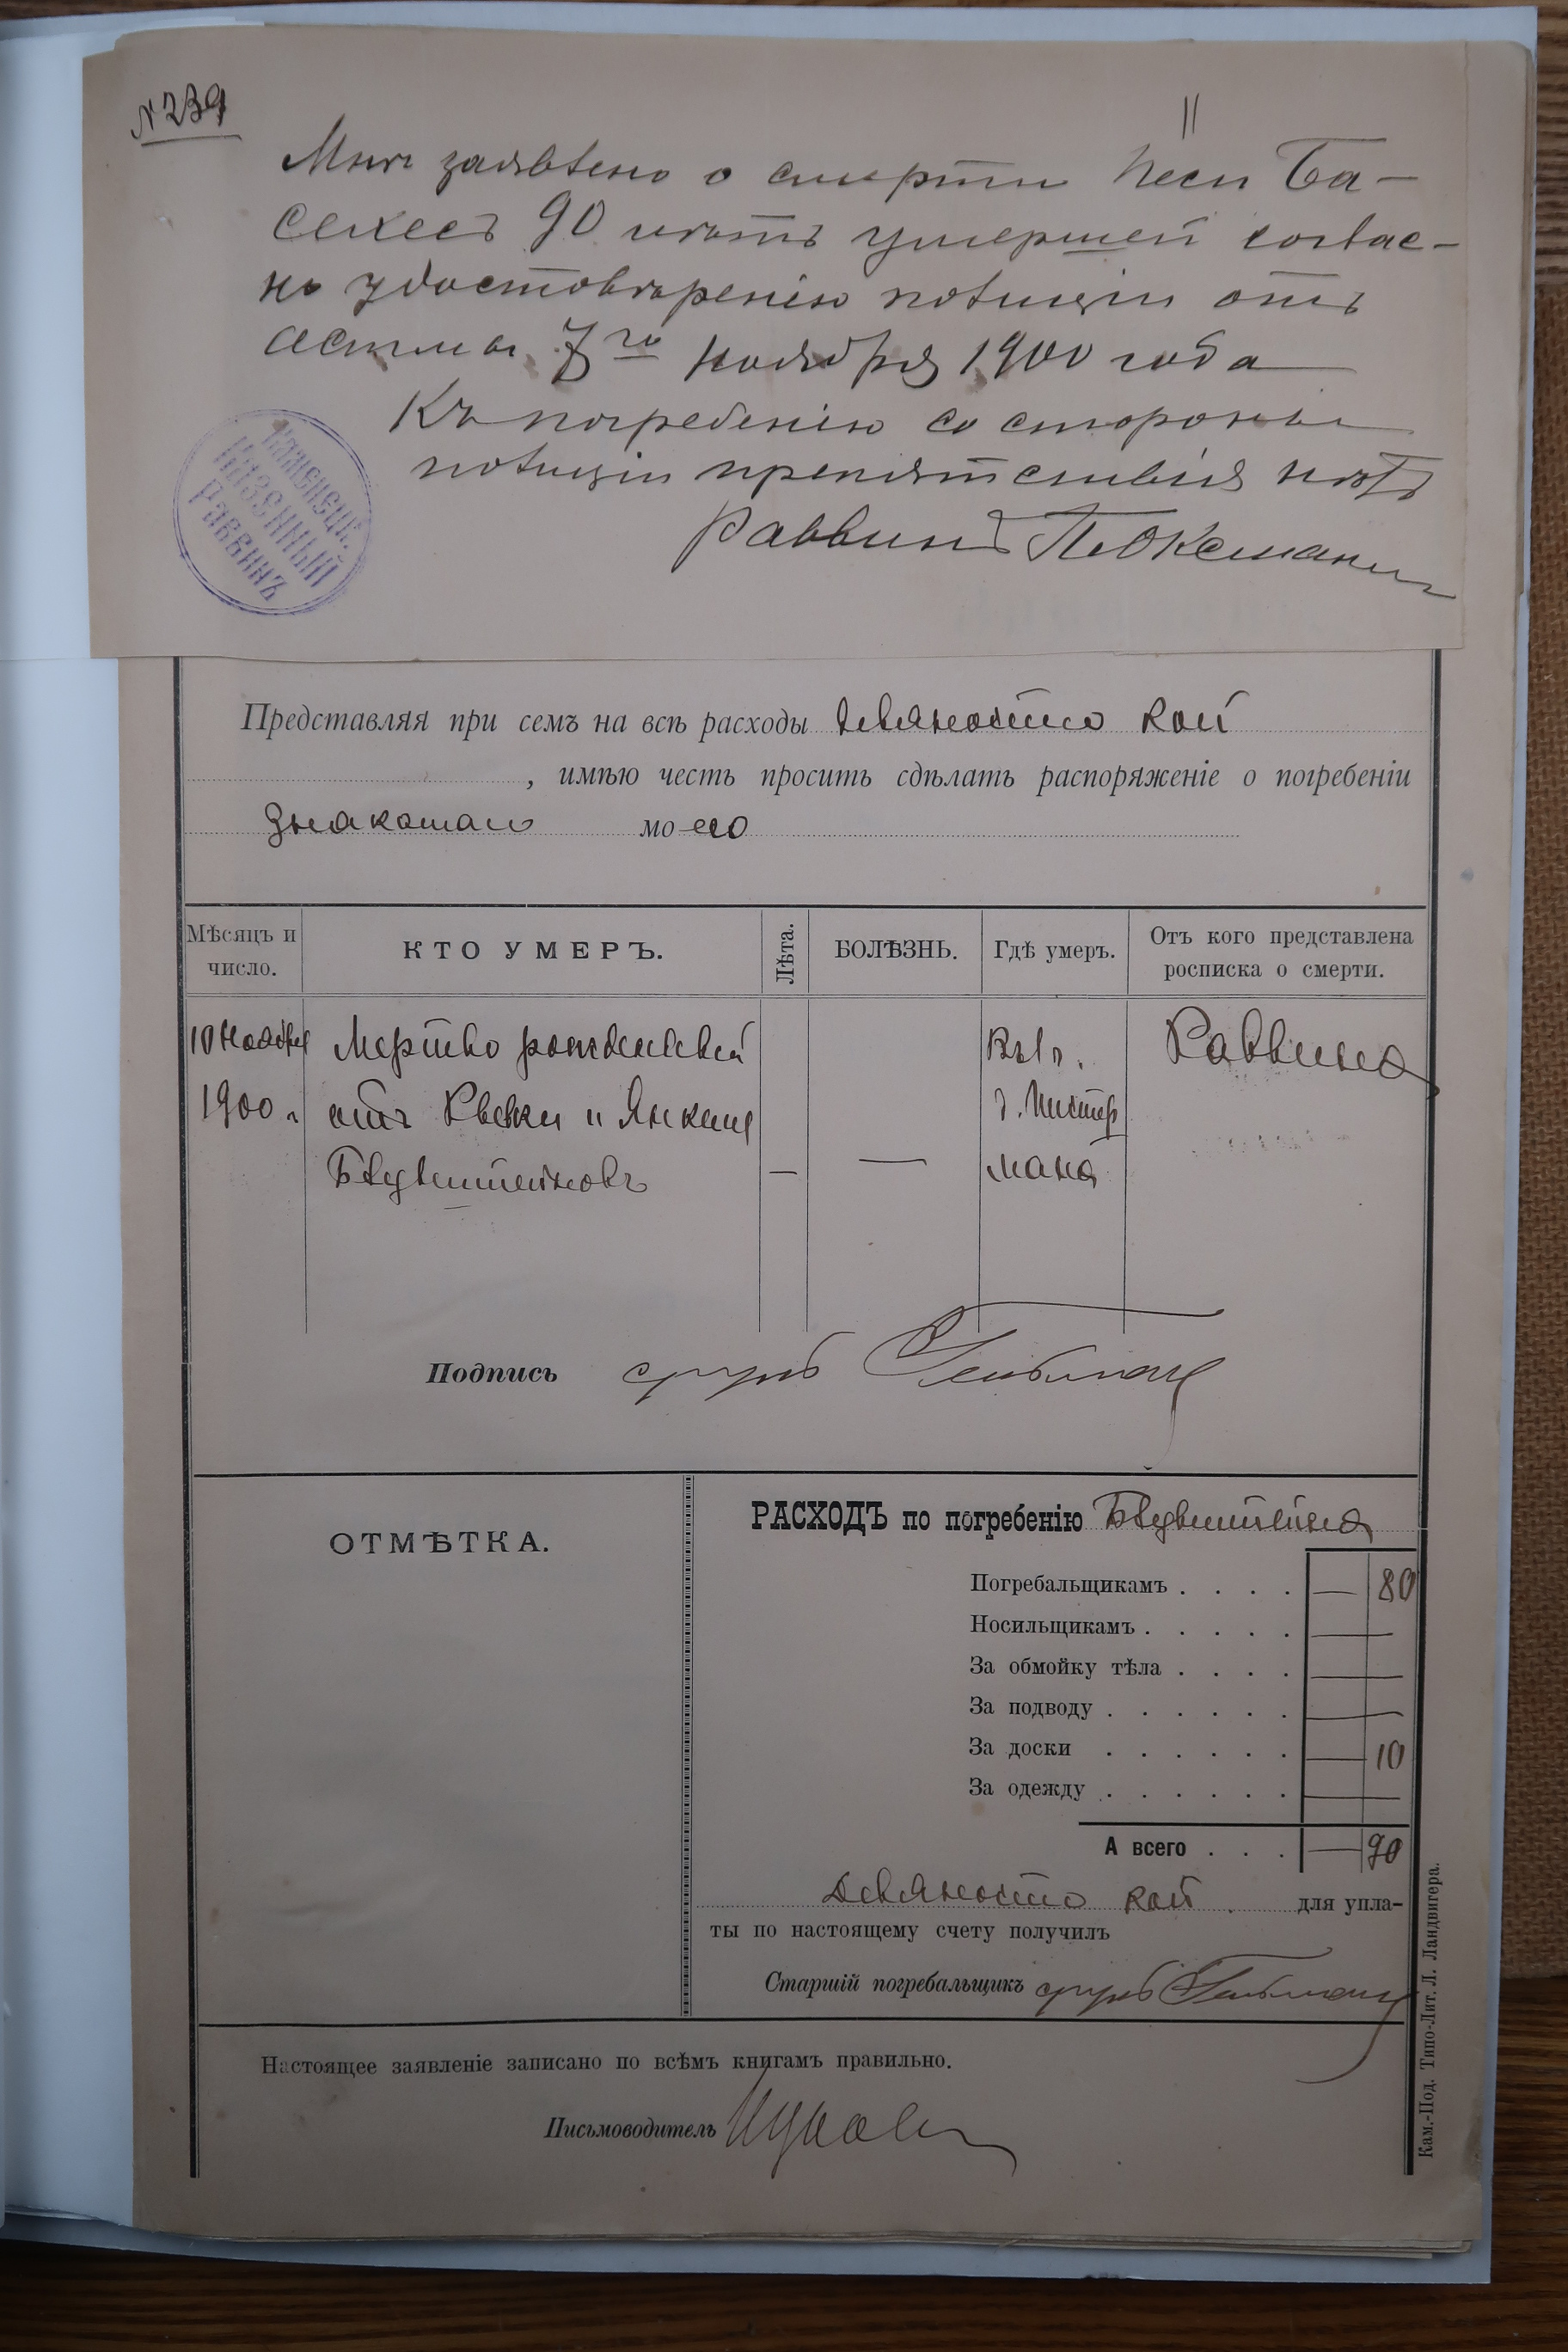 № 239
Мнѣ заявлено о смерти Песи Ба-
селесъ 90 лѣтъ умершей соглас-
но удостовѣренію полиціи отъ
астмы 7го Ноября 1900 года
Къ погребенію со стороны
полиціи препятствія нѣтъ
Раввинъ П. Оксманъ
Каменецк.
КАЗЕННЫЙ
Раввинъ
Представляя при семъ на всѣ расходы девяносто коп
, имѣю честь просить сдѣлать распоряженіе о погребеніи
знакомаго мо-его
Мѣсяцъ и число.
КТО УМЕРЪ.
Лѣта.
БОЛѢЗНЬ.
Гдѣ умеръ.
Отъ кого представлена росписка о смерти.
10 Ноября Мертво рожденный Раввина
1900 г. отъ Ривки и Янкеля
— —
мана
Подпись
ОТМѢТКА.
РАСХОДЪ по погребенію
Погребальщикамъ . . . . — 80
Носильщикамъ . . . . . —
За обмойку тѣла . . . . —
За подводу . . . . . . —
За доски . . . . . . — 10
За одежду . . . . . . —
А всего . . . — 90
Девяносто коп. для упла-
ты по настоящему счету получилъ
Старшій погребальщикъ
Настоящее заявленіе записано по всѣмъ книгамъ правильно.
Письмоводитель
Кам.-Под. Типо-Лит. Л. Ландвигера.